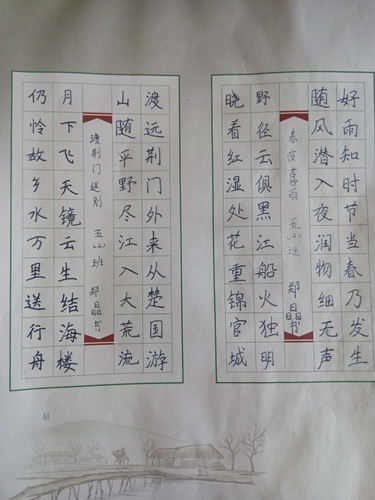 好雨知时节当春乃发生
随风潜入夜润物细无声
春夜喜雨 五(2)班 郑晶晶书
野径云俱黑江船火独明
晓看红湿处花重锦官城
渡远荆门外来从楚国游
山随平野尽江入大荒流
渡荆门送别 五(2)班 郑晶晶书
月下飞天镜云生结海楼
仍怜故乡水万里送行舟